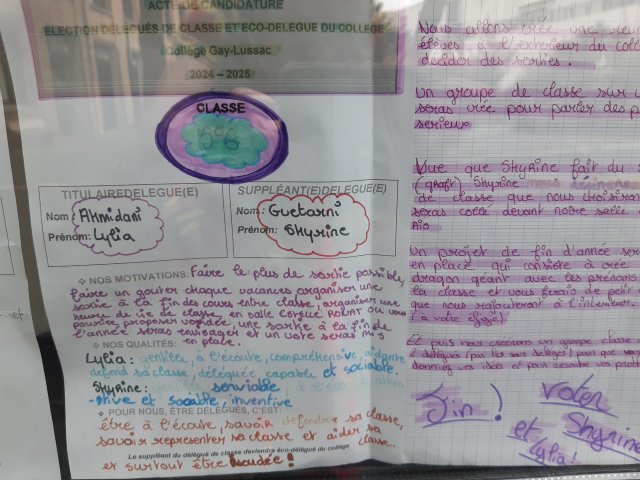 ACTE DE CANDIDATURE
ELECTION DÉLÉGUÉS DE CLASSE ET ECO-DELEGUE DU COLLEGE
Collège Gay-Lussac
2024 – 2025
CLASSE
TITULAIRE DELEGUE(E)
Nom : Ahmidani
Prénom: Lylia
SUPPLÉANT(E) DELEGUE(E)
Nom : Guetarni
Prénom: Shyrine
❖ NOS MOTIVATIONS: Faire le plus de sortie possible,
faire un goûter chaque vacances organiser une
sortie à la fin des cours entre classe, organiser une
heure de vie de classe, en salle
pourriez proposer vos idée, une sortie à la fin de
l'année seras envisager et un vote seras mis
en place.
❖ NOS QUALITÉS:
Lylia: gentille, à l'écoute, compréhensive, aidante
défend sa classe, déléguée capable et sociable.
Shyrine: gentille serviable à l'éco
-tive et sociable, inventive
❖ POUR NOUS, ÊTRE DÉLÉGUÉS, C'EST:
être à l'écoute, savoir défendre sa classe,
savoir représenter sa classe et aider sa
classe.
et surtout être soudée!
Le suppléant du délégué de classe deviendra éco-délégué du collège
Nous allons crée une
élèves à l'extérieur du
décider des sorties.
Un groupe de classe sur
seras crée pour parler des
serieux
Vue que Shyrine fait du
(graff) Shyrine nous
de classe que nous
seras collé devant notre salle
A10
Un projet de fin d'année
en place qui consiste à crée
dragon géant avec les prénoms
la classe et vous ferais de petit
que nous rajouterai à l'intérieur.
Et puis nous créerions un groupe classe
2 délégués (pas les sous délégés) pour que
donniez vos idées et pour résoudre vos
Fin !
voter
Shyrine
et
Lylia!